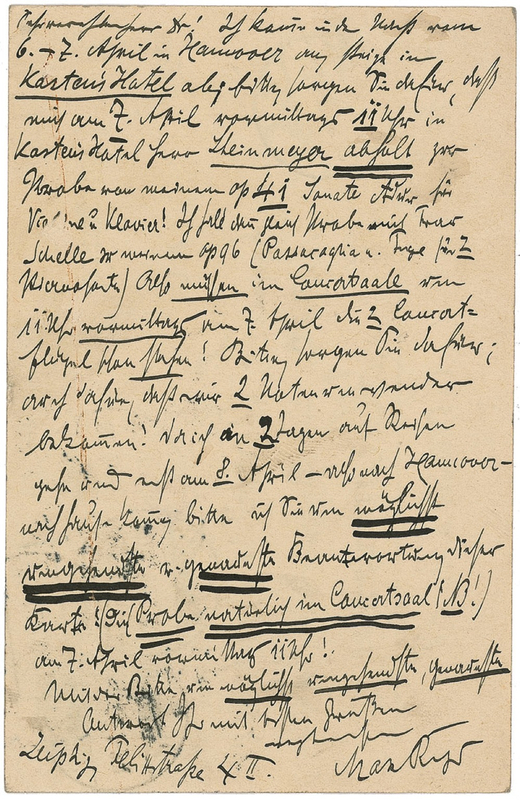 Sehrverehrter Herr Dr! Ich komme in der Nacht vom
6. – 7. April in Hannover an, steige in
Kastens Hotel ab; bitte, sorgen Sie dafür, daß
mich am 7. April vormittags 11 Uhr in
Kastens Hotel Herr Steinmeyer abholt zur
Probe von meinem op 41 Sonate Adur für
Violine u Klavier! Ich hab dann gleich Probe mit Frau
Schelle zu meinem op 96 (Passacaglia u. Fuge für 2
Pianoforte) Also müssen im Concertsaale um
11 Uhr vormittags am 7. April die 2 Concert=
flügel schon stehen! Bitte, sorgen Sie dafür;
auch dafür, daß wir 2 Notenumwender
bekommen! Da ich an 2 Tagen auf Reisen
gehe und erst am 8. April – also nach Hannover –
nachhause komme, bitte ich Sie um möglichst
umgehendste u. genaueste Beantwortung dieser
Karte! (Die Probe natürlich im Concertsaal! (NB!)
am 7. April vormittags 11 Uhr!
Bitte um möglichst umgehendste, genaueste
Antwort Ihr mit besten Grüßen
Leipzig, Felixstraße 4 II. Max Reger